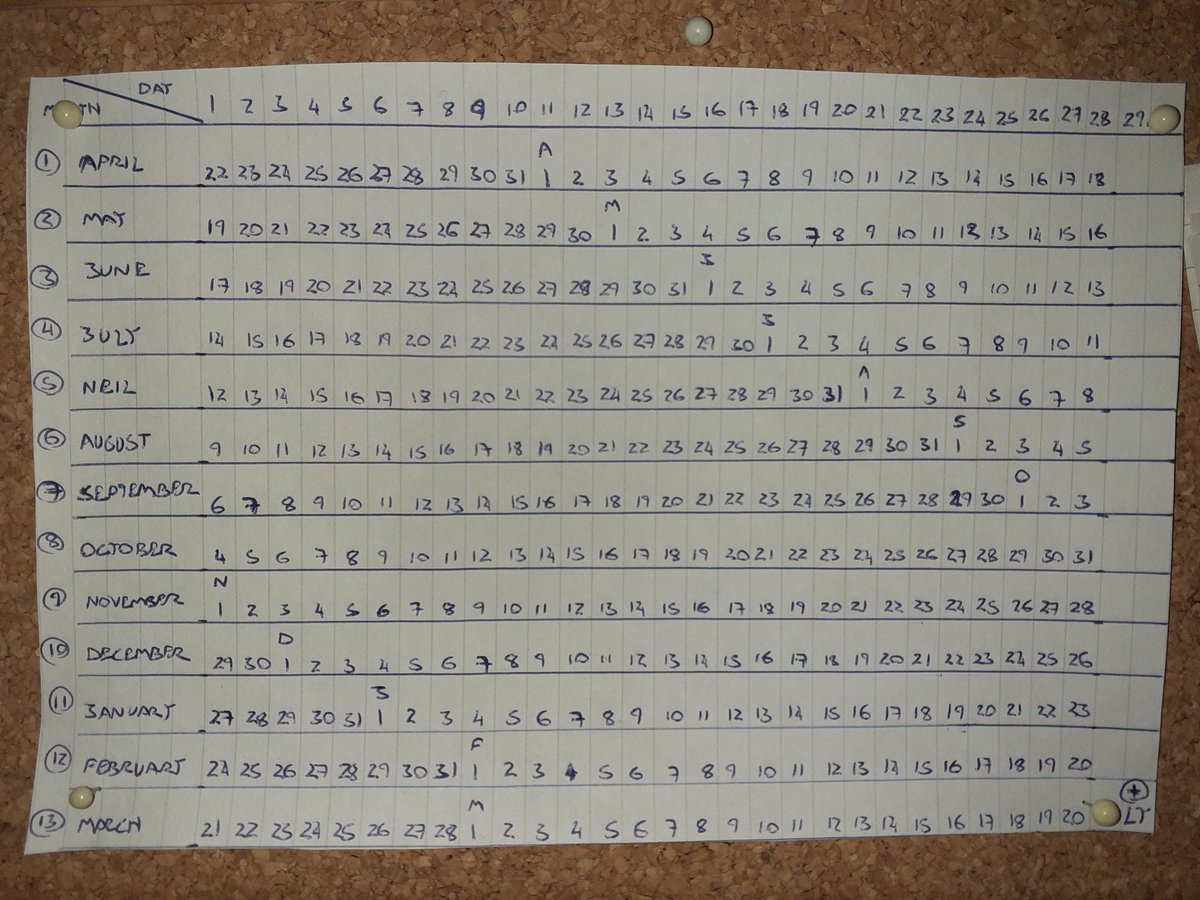 DAY 1 2 3 4 5 6 7 8 9 10 11 12 13 14 15 16 17 18 19 20 21 22 23 24 25 26 27 28 29
A
① APRIL 22 23 24 25 26 27 28 29 30 31 1 2 3 4 5 6 7 8 9 10 11 12 13 14 15 16 17 18
M
② MAY 19 20 21 22 23 24 25 26 27 28 29 30 1 2 3 4 5 6 7 8 9 10 11 12 13 14 15 16
J
③ JUNE 17 18 19 20 21 22 23 24 25 26 27 28 29 30 31 1 2 3 4 5 6 7 8 9 10 11 12 13
J
④ JULY 14 15 16 17 18 19 20 21 22 23 24 25 26 27 28 29 30 1 2 3 4 5 6 7 8 9 10 11
A
⑤ NEIL 12 13 14 15 16 17 18 19 20 21 22 23 24 25 26 27 28 29 30 31 1 2 3 4 5 6 7 8
S
⑥ AUGUST 9 10 11 12 13 14 15 16 17 18 19 20 21 22 23 24 25 26 27 28 29 30 31 1 2 3 4 5
O
⑦ SEPTEMBER 6 7 8 9 10 11 12 13 14 15 16 17 18 19 20 21 22 23 24 25 26 27 28 29 30 1 2 3
⑧ OCTOBER 4 5 6 7 8 9 10 11 12 13 14 15 16 17 18 19 20 21 22 23 24 25 26 27 28 29 30 31
N
⑨ NOVEMBER 1 2 3 4 5 6 7 8 9 10 11 12 13 14 15 16 17 18 19 20 21 22 23 24 25 26 27 28
D
⑩ DECEMBER 29 30 1 2 3 4 5 6 7 8 9 10 11 12 13 14 15 16 17 18 19 20 21 22 23 24 25 26
J
⑪ JANUARY 27 28 29 30 31 1 2 3 4 5 6 7 8 9 10 11 12 13 14 15 16 17 18 19 20 21 22 23
F
⑫ FEBRUARY 24 25 26 27 28 29 30 31 1 2 3 4 5 6 7 8 9 10 11 12 13 14 15 16 17 18 19 20
M
⑬ MARCH 21 22 23 24 25 26 27 28 1 2 3 4 5 6 7 8 9 10 11 12 13 14 15 16 17 18 19 20
+
LY